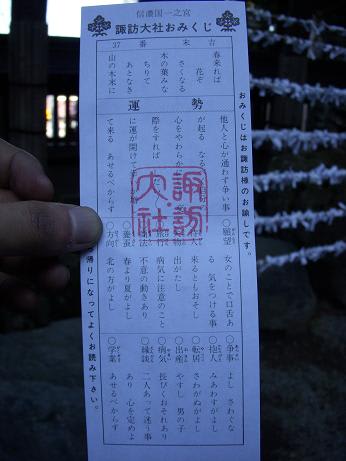 信濃国一之宮
諏訪大社おみくじ
37 番 末 吉
春来れば
花ぞ
さくなる
木の葉みな
ちりて
あとなき
山の木末に
運勢
他人と心が通わず争い事
が起る
心をやわらか
際をすれば
に運が開けて
て来る あせるべからず
○願望
女のことで口舌あ
る 気をつける事
来るともおそし
出がたし
○旅行
病気に注意のこと
不意の動きあり
○養蚕
春より夏がよし
○方向
北の方がよし
○争事
よし さわぐな
○抱人
みあわすがよし
○転居
さわがぬがよし
○出産
やすし 男の子
○病気
長びくおそれあり
○縁談
二人あって迷う事
あり 心を定めよ
○学業
あせるべからず
諏訪大社
おみくじはお諏訪様のお諭しです。
帰りになってよくお読み下さい。